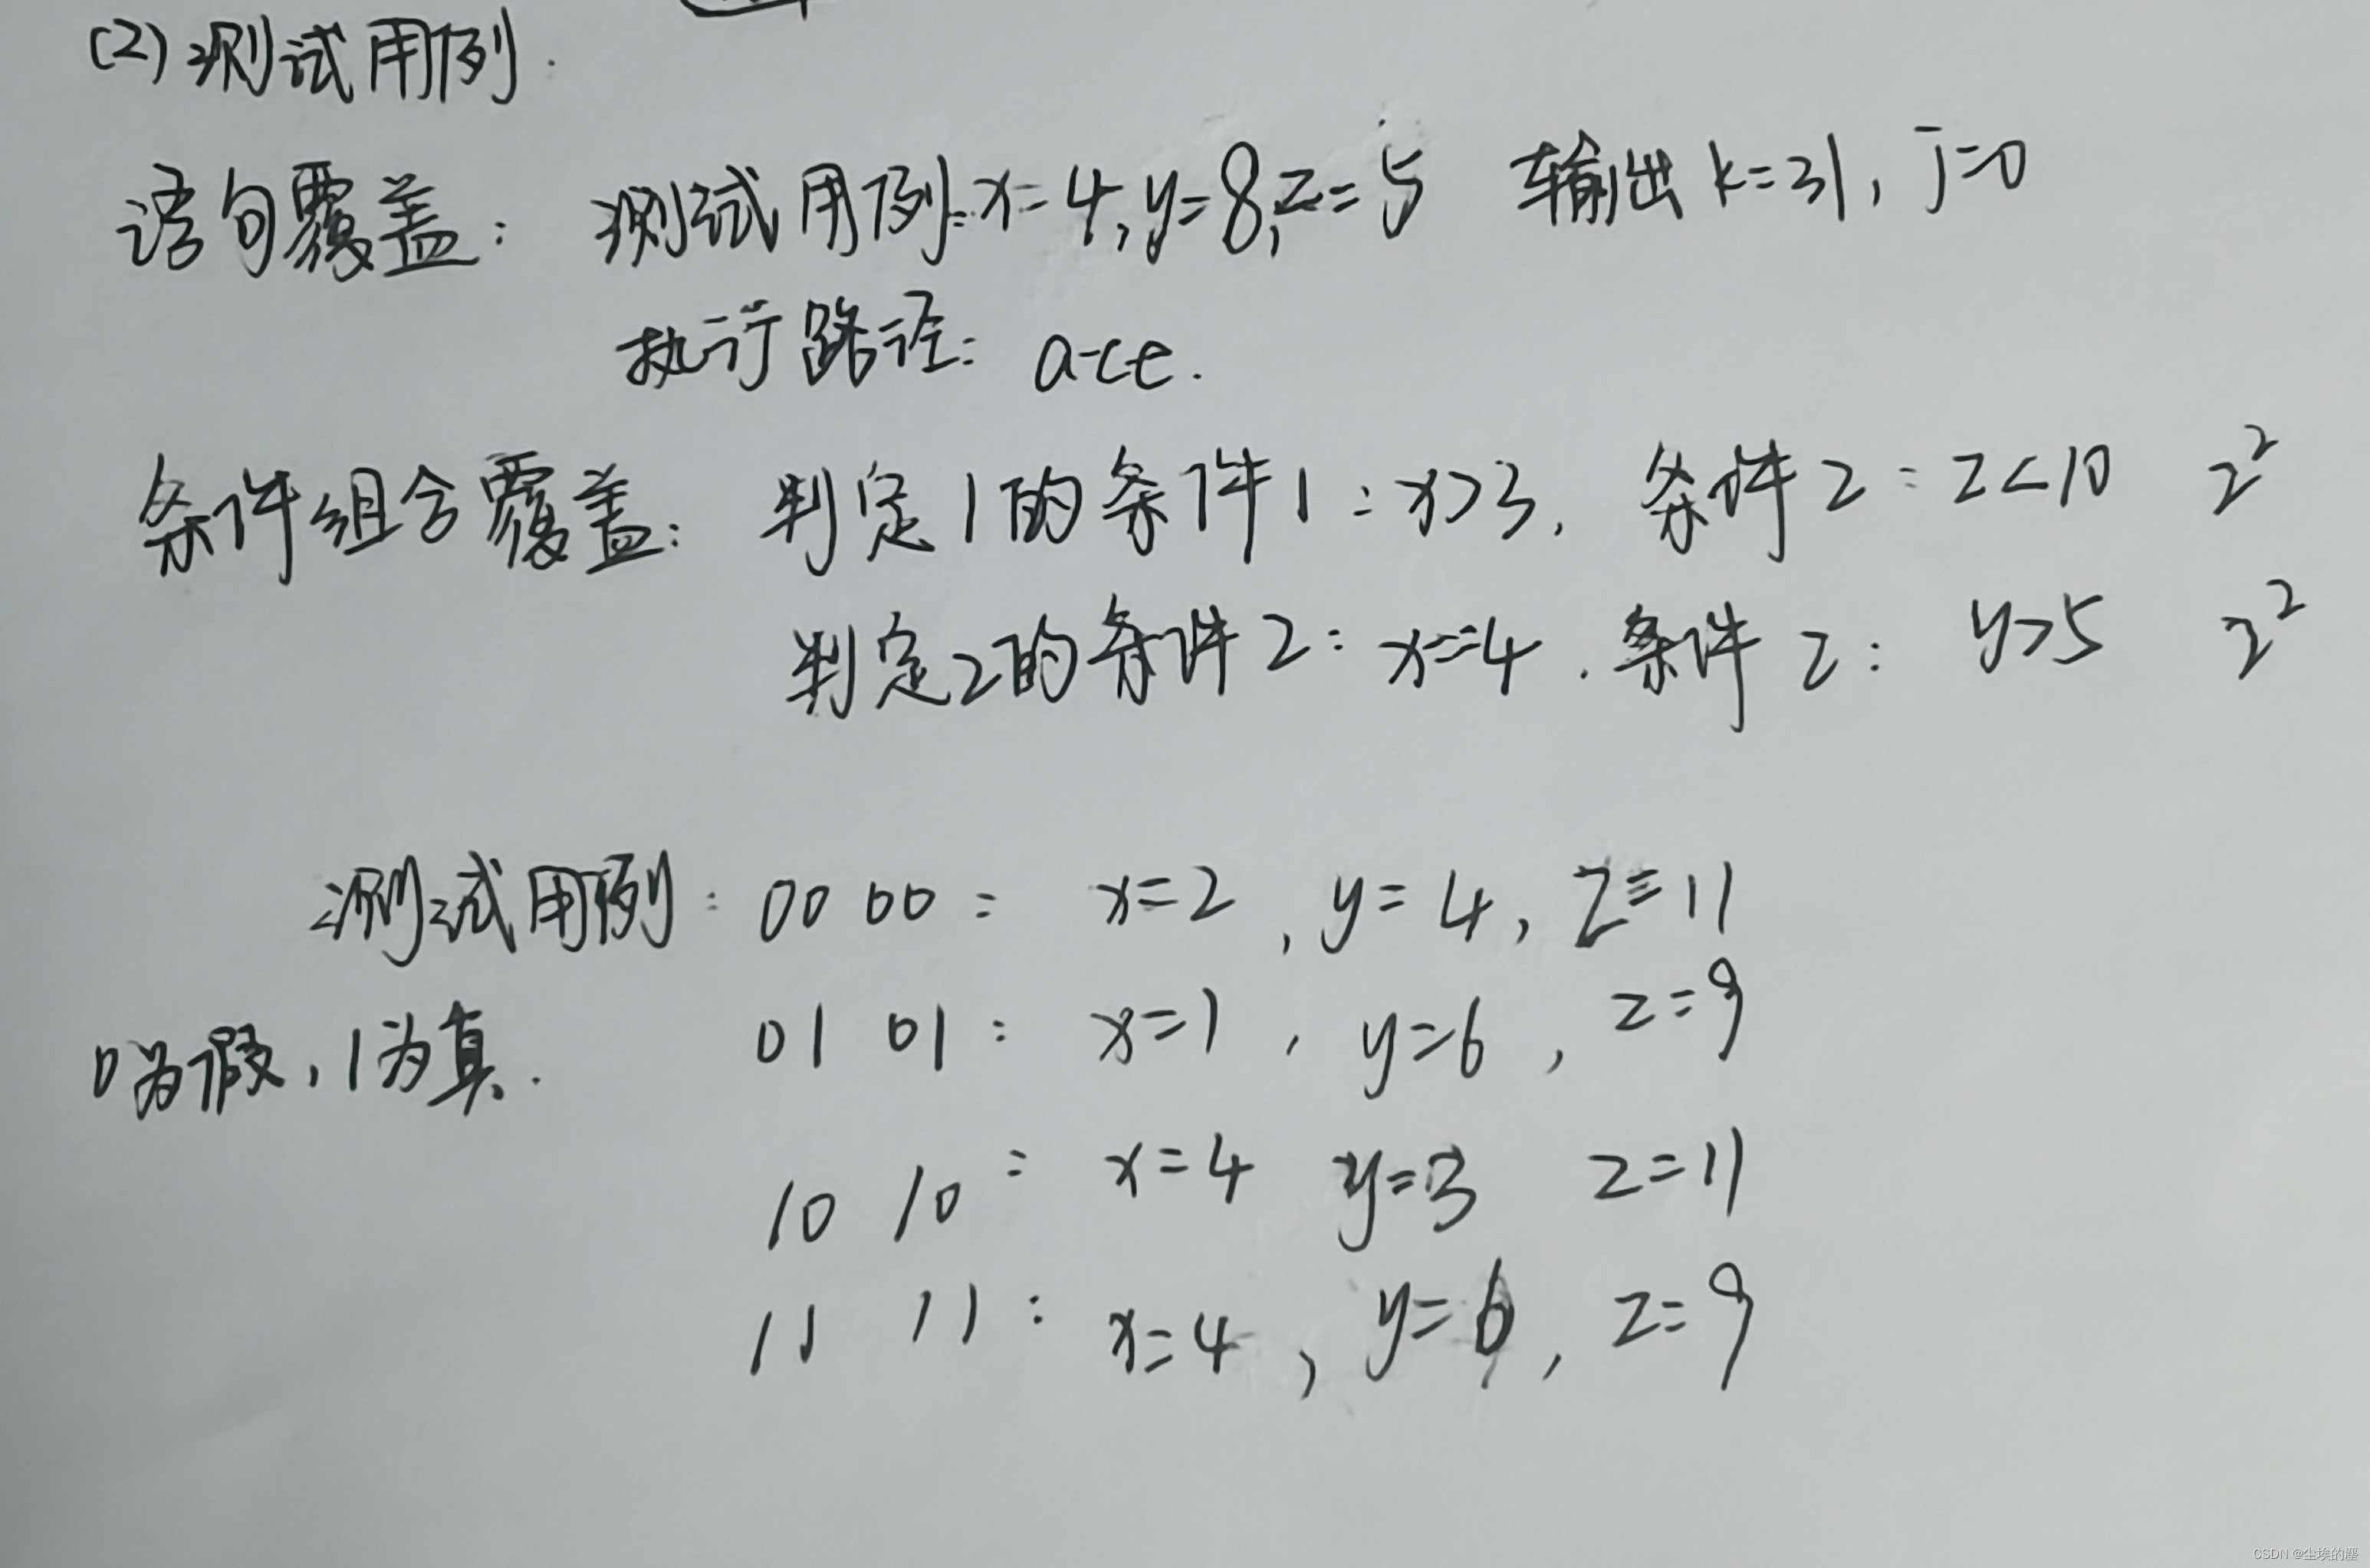 (2) 测试用例:
语句覆盖: 测试用例: x=4, y=8, z=5 输出 k=31, j=0
执行路径: a-c-e.
条件组合覆盖: 判定1的条件1: x>3, 条件2: z<10 2²
判定2的条件2: x==4. 条件2: y>5 2²
测试用例: 00 00: x=2, y=4, z=11
0为假, 1为真. 01 01: x=1, y=6, z=9
10 10: x=4 y=3 z=11
11 11: x=4, y=6, z=9
CSDN @尘埃的塵